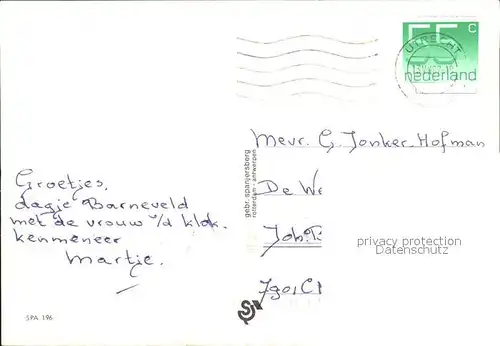 55 c
UTRECHT
nederland
Mevr. G. Jonker-Hofman
De We
Joh.
privacy protection
Datenschutz
gebr. spanjersberg
rotterdam - antwerpen
Groetjes,
dagje Barneveld
met de vrouw v/d klok.
kenmeneer
Martje.
SPA 196